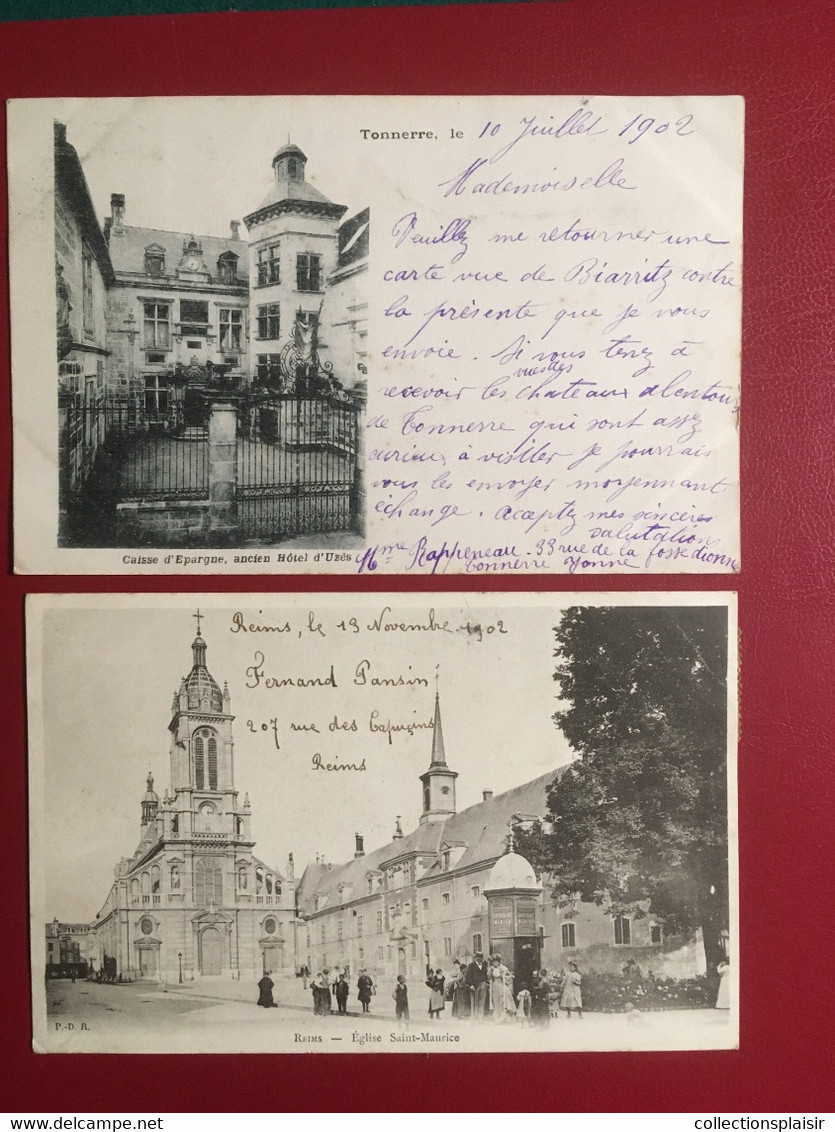 Tonnerre, le 10 Juillet 1902
Mademoiselle
Veuillez me retourner une
carte vue de Biarritz contre
la présente que je vous
envoie. Si vous tenez à
recevoir les vues des chateaux alentours
de Tonnerre qui sont assez
curieux à visiter je pourrais
vous les envoyer moyennant
échange. Acceptez mes sincères
salutations
Mme Rappeneau. 33 rue de la fosse dionne
Tonnerre Yonne
Caisse d'Epargne, ancien Hôtel d'Uzès
Reims, le 13 Novembre 1902
Fernand Pansin
207 rue des Capucins
Reims
P.-D. R.
REIMS — Église Saint-Maurice
collectionsplaisir